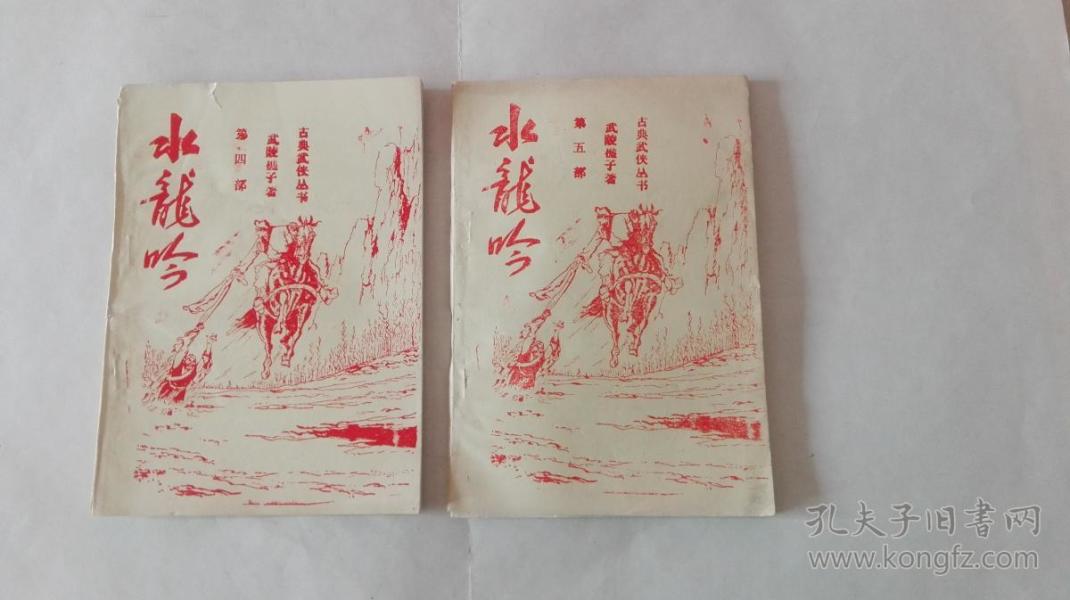 水龍吟
古典武侠丛书
武陵樵子著
第四部
水龍吟
古典武侠丛书
武陵樵子著
第五部
孔夫子旧書网
www.kongfz.com